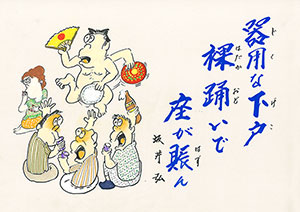 器用な下戸
げこ
裸踊いで
はだか おど
座が賑ん
はず